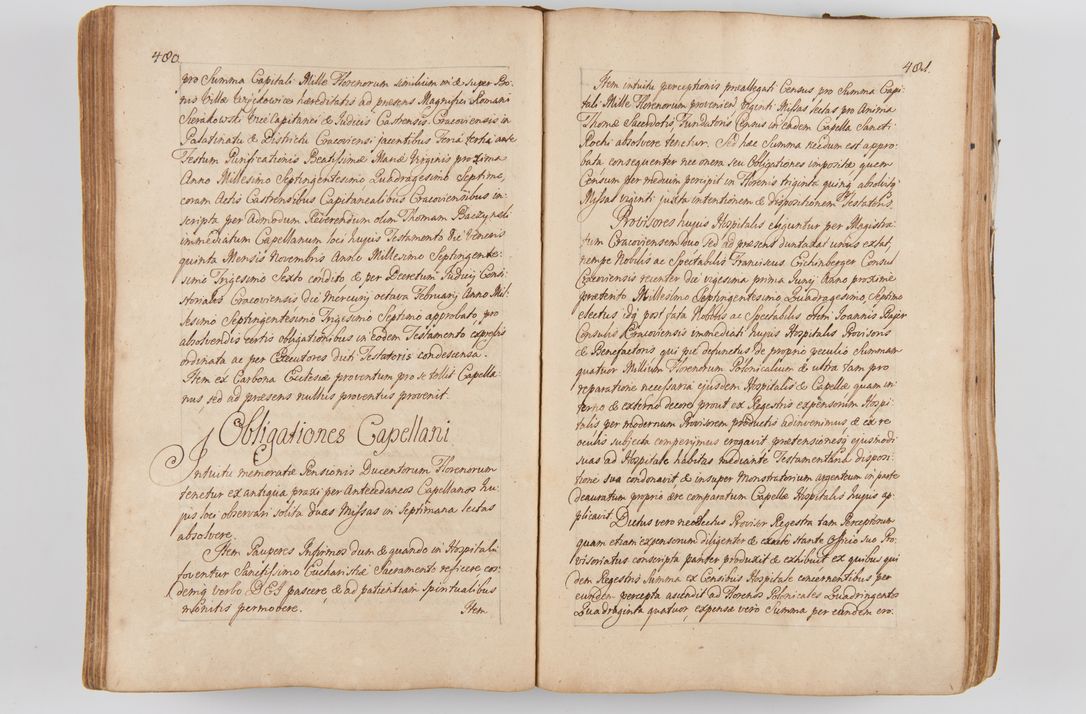 480.
pro Summa Capitali Mille Florenorum similium in & super Bo-
nis Villæ Więckowice hæreditatis ad præsens Magnifici Romani
Sierakowski Vice Capitanei & Judicis Castrensis Cracoviensis in
Palatinatu & Districtu Cracoviensi jacentibus Feria tertia ante
Festum Purificationis Beatissimæ Mariæ Virginis proxima
Anno Millesimo Septingentesimo Quadragesimo Septimo,
coram Actis Castrensibus Capitanealibus Cracoviensibus in-
scripta per Admodum Reverendum olim Thomam Baczynski
immediatum Capellanum loci hujus Testamento die Veneris
quinta Mensis Novembris Anno Millesimo Septingente-
simo Trigesimo Sexto condito & per Decretum Judicij Consi-
storialis Cracoviensis die Mercurij octava Februarij Anno Mil-
lesimo Septingentesimo Trigesimo Septimo approbato, pro
absolvendis certis obligationibus in eodem Testamento expressis
ordinata ac per Executores dicti Testatoris condescensa.
Item ex Carbona Ecclesiæ proventum pro se tollit Capella-
nus, sed ad præsens nullus proventus provenit.
Obligationes Capellani
Intuitu memoratæ Pensionis Ducentorum Florenorum
tenetur ex antiqua praxi per Antecedaneos Capellanos hu-
jus loci observari solita duas Missas in Septimana lectas
absolvere.
Item Pauperes Infirmos dum & quando in Hospitali
foventur Sanctissimo Eucharistiæ Sacramento reficere eos-
demq verbo DEI pascere, & ad patientiam spiritualibus
monitis permovere.
Item
481.
Item intuitu perceptionis præallegati Census pro Summa Capi-
tali Mille Florenorum provenien viginti Missas lectas pro Anima
Thomæ Sacerdotis, Fundatoris Census in eadem Capella Sancti
Rochi absolvere tenetur. Sed hæc Summa necdum est appro-
bata consequenter nec onera seu Obligationes impositæ quem
Censum per medium percipit in Florenis triginta quinq absolvit
Missas viginti juxta intentionem & dispositionem Testatoris.
Provisores hujus Hospitalis eliguntur per Magistra-
tum Cracoviensem duo sed ad præsens duntaxat unus extat,
nempe Nobilis ac Spectabilis Franciscus Eichinberger Consul
Cracoviensis recenter die vigesima prima Junij Anno proxime
præterito Millesimo Septingentesimo Quadragesimo, Septimo
electus idq post fata Nobilis ac Spectabilis olim Joannis Bajer
Consulis Cracoviensis immediati hujus Hospitalis Provisoris
& Benefactoris qui pie defunctus de proprio peculio Summam
quatuor Millium Florenorum Polonicalium & ultra tam pro
reparatione necessaria ejusdem Hospitalis & Capellæ quam in-
terno & externo decore prout ex Regestris expensorum Hospi-
talis per modernum Provisorem productis adinvenimus & ex re
oculis subjecta comperimus erogavit prætensionesq ejusmodi
suas ad Hospitale habitas mediante Testamentaria disposi-
tione sua condonavit & insuper Monstratorium argenteum in parte
deauratum proprio ære comparatum Capellæ Hospitalis hujus ap-
plicavit. Dictus vero neoelectus Provisor Regestra tam Perceptorum
quam etiam expensorum diligenter & stante Officio suo Pro-
visoriatus conscripta pariter produxit & exhibuit ex quibus qui-
dem Regestris Summa ex Censibus Hospitale concernentibus per
eundem percepta ascendit ad Florenos Polonicales Quadringentos
Quadraginta quatuor, expensa vero Summa per eundem ero-